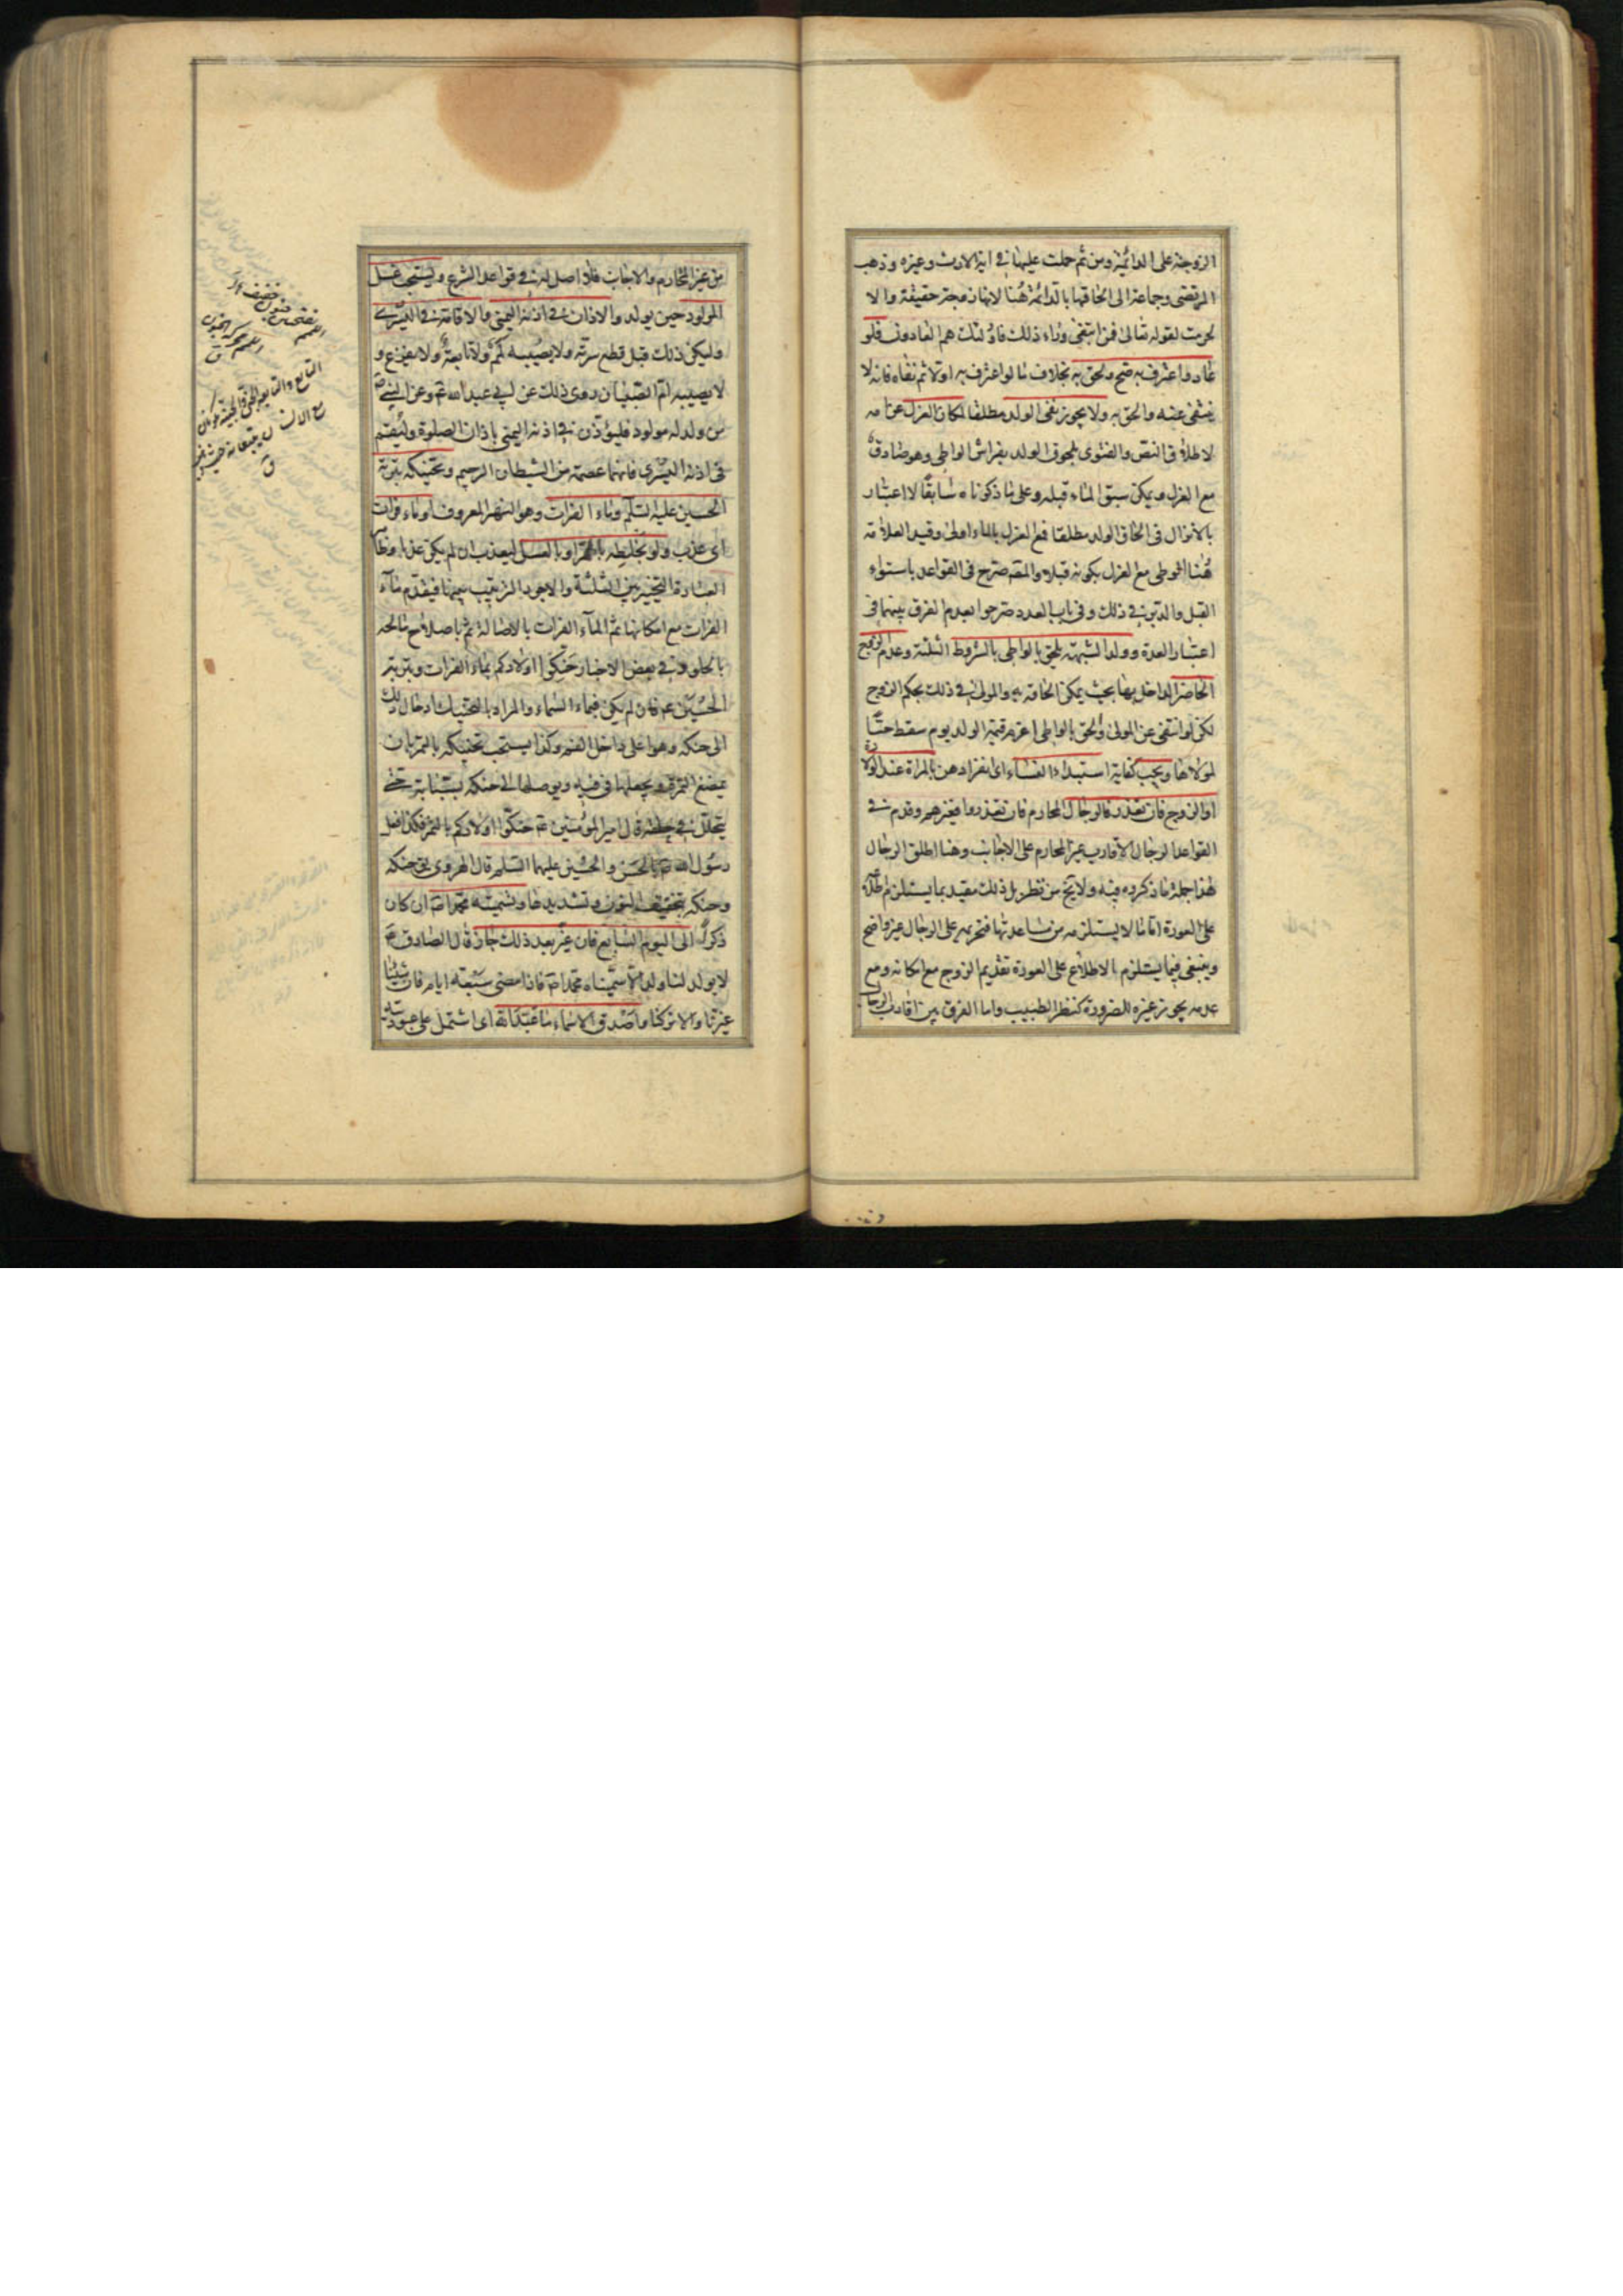 الزوجته على الدائمية ومن ثم حملت عليها في اية الارث وغيره وذهب
المرتضى وجماعة الى الحاقها بالدائمة هنا لانها زوجة حقيقة والا
لحرمت لقوله تعالى فمن ابتغى وراء ذلك فاولئك هم العادون فلو
عاد واعترف به صح ولحق به بخلاف ما لو اعترف به اولا ثم نفاه فانه لا
ينتفى عنه والحق به ولا يجوز نفى الولد مطلقا لمكان العزل عن امه
لاطلاق النص والفتوى بلحوق الولد بفراش الواطى وهو صادق
مع العزل ويمكن سبق الماء قبله وعلى ما ذكرناه سابقا لا اعتبار
بالانزال في الحاق الولد مطلقا فمع العزل بالماء اولى وقيد العلامة
هنا الوطى مع العزل بكونه قبلا والمصنف صرح في القواعد باستواء
القبل والدبر في ذلك وفي باب العدد صرحوا بعدم الفرق بينهما في
اعتبار العدة وولد الشبهة يلحق بالواطى بالشروط الثلثة وعدم الزوج
الحاضر الداخل بها بحيث يمكن الحاقه به والمولى في ذلك بحكم الزوج
لكن لو انتفى عن المولى ولحق بالواطى اغرم قيمة الولد يوم سقط حيا
لمولاها ويجب كفاية استبداد النساء اى انفرادهن بالمراة عند الولادة
او الزوج فان تعذر فالرجال المحارم فان تعذروا فغيرهم وقدم في
القواعد الرجال الاقارب غير المحارم على الاجانب وهنا اطلق الرجال
هذا جملة ما ذكروه فيه ولا يخ من نظر بل ذلك مقيد بما يستلزم اطلاعه
على العورة اما ما لا يستلزمه من مساعدتها فتحريمه على الرجال غير واضح
وينبغى فيما يستلزم الاطلاع على العورة تقديم الزوج مع امكانه ومع
عدمه يجوز غيره للضرورة كنظر الطبيب واما الفرق بين اقارب الرجال
من غير المحارم والاجانب فلا اصل له في قواعد الشرع ويستحب غسل
المولود حين يولد والاذان في اذنه اليمنى والاقامة في اليسرى
وليكن ذلك قبل قطع سرته ولا يصيبه لمم ولا تابعة ولا يفزع و
لا يصيبه ام الصبيان روى ذلك عن ابي عبد الله ع وعن النبى ص
من ولد له مولود فليؤذن في اذنه اليمنى باذان الصلوة وليقم
في اذنه اليسرى فانهما عصمة من الشيطان الرجيم وتحنيكه بتربة
الحسين عليه السلم وماء الفرات وهو النهر المعروف او ماء فرات
اى عذب ولو بخلطه بالتمر او بالعسل ليعذب ان لم يكن عذبا وظاهر
العبارة التخيير بين الثلثة والاجود الترتيب بينها فيقدم ماء
الفرات مع امكانه ثم الماء الفرات بالاصالة ثم باصلاح مالحه
بالحلو وفي بعض الاخبار حنكوا اولادكم بماء الفرات وبتربة
الحسين ع فان لم يكن فبماء السماء والمراد بالتحنيك ادخال ذلك
الى حنكه وهو اعلى داخل الفم وكذا يستحب تحنيكه بالتمر بان
يمضغ التمرة ويجعلها في فيه ويوصلها الى حنكه بسبابته حتى
يتحلل في حلقه قال امير المؤمنين ع حنكوا اولادكم بالتمر فكذا فعل
رسول الله ص بالحسن والحسين عليهما السلم قال الهروى يق حنكه
وحنكه بتخفيف النون وتشديدها وتسميته محمدا ان كان
ذكرا الى اليوم السابع فان غير بعد ذلك جاز قال الصادق ع
لا يولد لنا ولد الا سميناه محمدا فاذا مضى سبعة ايام فان شئنا
غيرنا والا تركنا واصدق الاسماء ما عبد لله اى اشتمل على عبودية